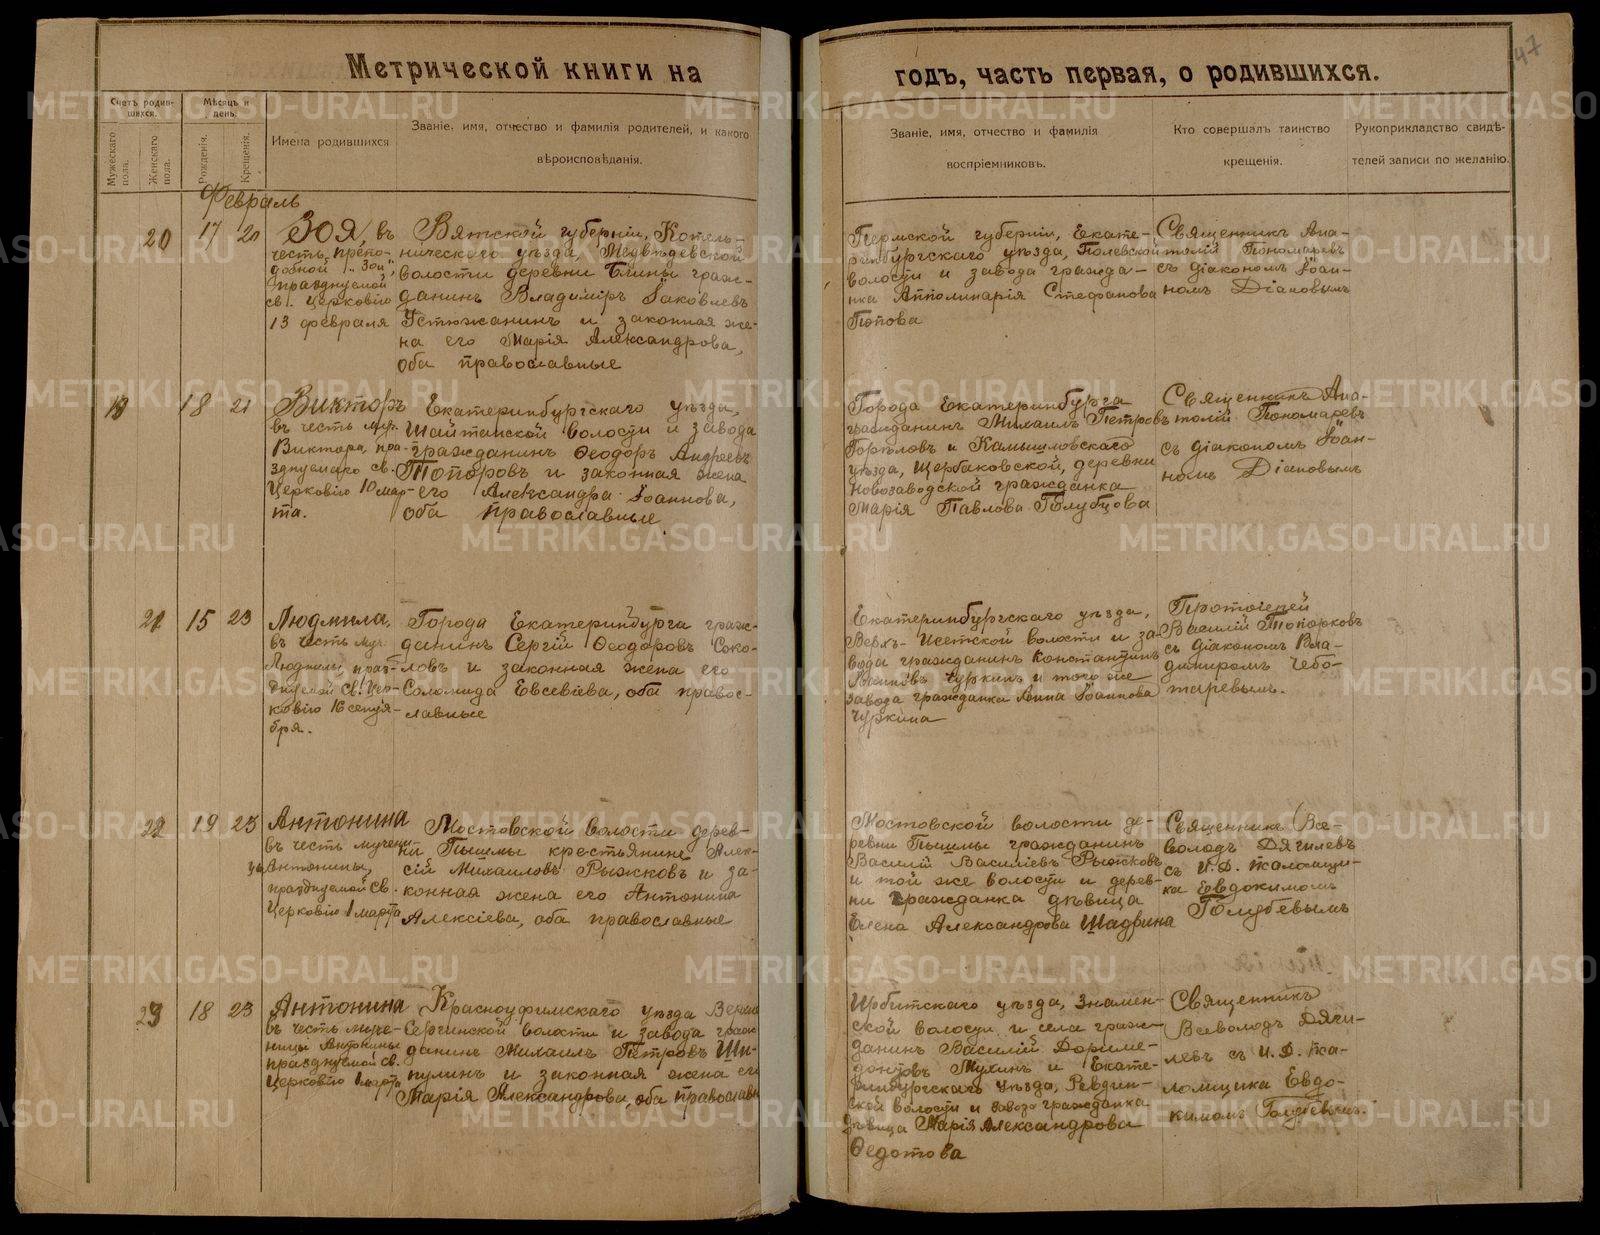 Метрической книги на
годъ, часть первая, о родившихся.
47
Счетъ родив-
шихся.
Мѣсяцъ и
день.
Мужескаго
пола.
Женскаго
пола.
Рожденія.
Крещенія.
Имена родившихся
Званіе, имя, отчество и фамилія родителей, и какого
вѣроисповѣданія.
Званіе, имя, отчество и фамилія
воспріемниковъ.
Кто совершалъ таинство
крещенія.
Рукоприкладство свидѣ-
телей записи по желанію.
Февраль
20
17
20
Зоя, въ
честь препо-
добной „Зои“,
празднуемой
св. церковію
13 февраля
Вятской губерніи, Котель-
ническаго уѣзда, Медвѣдевской
волости деревни граж-
данинъ Владиміръ Іаковлевъ
Устюжанинъ и законная же-
на его Марія Александрова,
оба православные
Пермской губерніи, Екате-
ринбургскаго уѣзда, Полевской
волости и завода гражда-
нка Апполинарія Стефанова
Попова
Священникъ Ана-
толій Пономаревъ
съ діакономъ Іоан-
номъ Діановымъ
19
18
21
Викторъ
въ честь муч.
Виктора, пра-
зднуемаго св.
Церковію 10 мар-
та.
Екатеринбургскаго уѣзда,
Шайтанской волости и завода
гражданинъ Ѳеодоръ Андреевъ
Топоровъ и законная жена
его Александра Іоаннова,
оба православные
Города Екатеринбурга
гражданинъ Михаилъ Петровъ
Горѣловъ и Камышловскаго
уѣзда, Щербаковской, деревни
Новозаводской гражданка
Марія Павлова Голубцова
Священникъ Ана-
толій Пономаревъ
съ діакономъ Іоан-
номъ Діановымъ
21
15
23
Людмила,
въ честь муч.
Людмилы, праз-
днуемой св. Цер-
ковію 16 сентя-
бря.
Города Екатеринбурга граж-
данинъ Сергій Ѳеодоровъ Соко-
ловъ и законная жена его
Соломида Евсевіева, оба правос-
лавные
Екатеринбургскаго уѣзда,
Верхъ-Исетской волости и за-
вода гражданинъ Константинъ
Чуркинъ и того же
завода гражданка Анна Іоаннова
Чуркина
Протоіерей
Василій Топорковъ
съ діакономъ Вла-
диміромъ Чебо-
таревымъ.
22
19
23
Антонина
въ честь мучени-
цы Антонины,
празднуемой св.
Церковію 1 марта
Мостовской волости дерев-
ни Пышмы крестьянинъ Алек-
сій Михаиловъ Рыжковъ и за-
конная жена его Антонина
Алексіева, оба православные
Мостовской волости де-
ревни Пышмы гражданинъ
Василій Василіевъ Рыжковъ
и той же волости и дерев-
ни гражданка дѣвица
Елена Александрова Шадрина
Священникъ Все-
володъ Дягилевъ
съ И. Д. псаломщи-
ка Евдокимомъ
Голубевымъ
23
18
23
Антонина
въ честь муче-
ницы Антонины
празднуемой св.
Церковію 1 марта
Красноуфимскаго уѣзда Верхне
Сергинской волости и завода граж-
данинъ Михаилъ Петровъ Ши-
пулинъ и законная жена его
Марія Александрова, оба православн
Ирбитскаго уѣзда, Знамен-
ской волости и села граж-
данинъ Василій Дориме-
донтовъ Мухинъ и Екате-
ринбургскаго уѣзда, Ревдин-
ской волости и завода гражданка
дѣвица Марія Александрова
Ѳедотова
Священникъ
Всеволодъ Дяги-
левъ съ И. Д. пса-
ломщика Евдо-
кимомъ Голубевымъ.